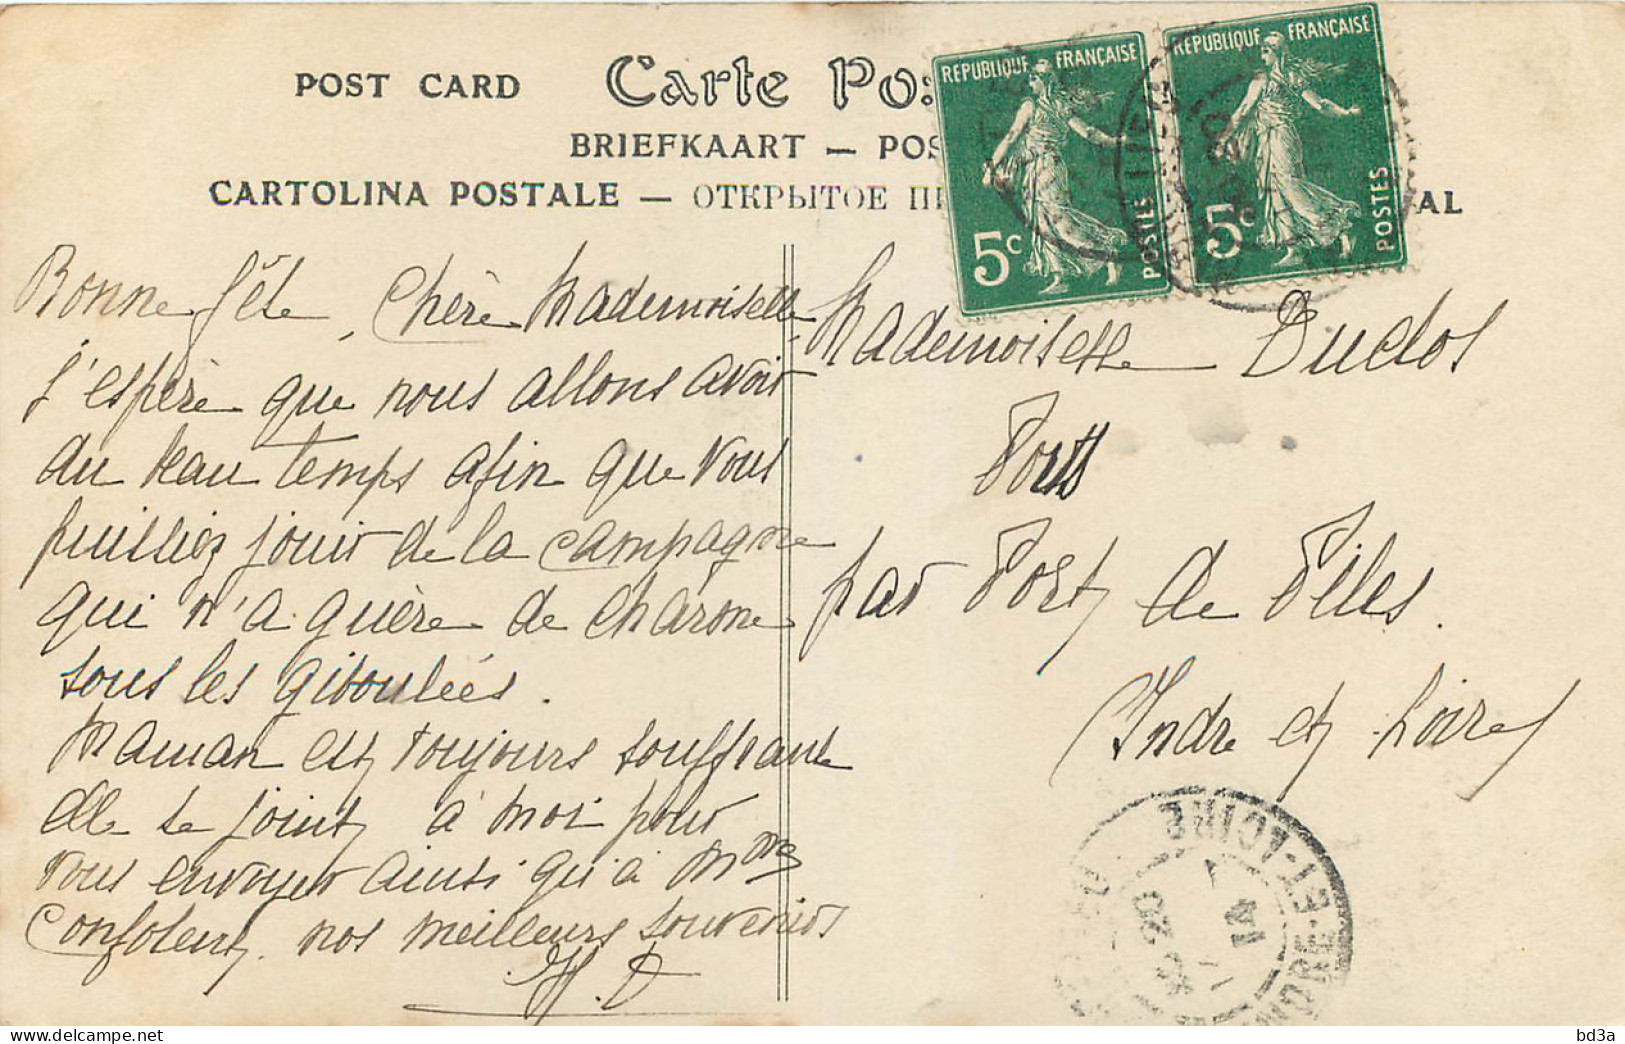 POST CARD Carte Pos
BRIEFKAART — POS
CARTOLINA POSTALE — ОТКРЫТОЕ П AL
REPUBLIQUE FRANÇAISE
5c POSTES
REPUBLIQUE FRANÇAISE
5c POSTES
Bonne fête, Chère Mademoiselle,
J'espère que nous allons avoir
du beau temps afin que vous
puissiez jouir de la campagne
qui n'a guère de charme
sous les giboulées.
Maman est toujours souffrante
elle se joint à moi pour
vous envoyer ainsi qu'à Mme
Confolent nos meilleurs souvenirs
H. D
Mademoiselle Duclos
Ports
par Port de Piles.
Indre et Loire
INDRE-ET-LOIRE
14
bd3a